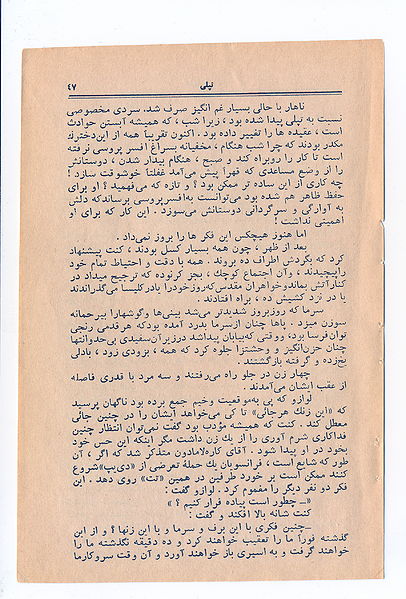 تپلی
۴۷
ناهار با حالی بسیار غم انگیز صرف شد. سردی مخصوصی
نسبت به تپلی پیدا شده بود، زیرا شب، که همیشه آبستن حوادث
است، عقیده ها را تغییر داده بود. اکنون تقریباً همه از این دخترك
مکدر بودند که چرا شب هنگام، مخفیانه بسراغ افسر پروسی نرفته
است تا کار را روبراه کند و صبح، هنگام بیدار شدن، دوستانش
را از وضع مساعدی که قهراً پیش می‌آمد غفلتاً خوشوقت سازد!
چه کاری از این ساده تر ممکن بود؟ و تازه که می‌فهمید؟ او برای
حفظ ظاهر هم شده بود می‌توانست به افسر پروسی برساند که دلش
به آوارگی و سرگردانی دوستانش می‌سوزد. این کار که برای او
اهمیتی نداشت!
اما هنوز هیچکس این فکر ها را بروز نمی‌داد.
بعد از ظهر، چون همه بسیار کسل بودند، کنت پیشنهاد
کرد که بگردش اطراف ده بروند. همه با دقت و احتیاط تمام خود
را پیچیدند، و آن اجتماع کوچك، بجز کرنوده که ترجیح میداد در
کنار آتش بماند و خواهران مقدس که روز خود را یا در کلیسا می‌گذراندند
یا در نزد کشیش ده، براه افتادند.
سرما که روز بروز شدیدتر می‌شد بینی‌ها و گوشها را بیرحمانه
سوزن میزد. پاها چنان از سرما بدرد آمده بود که هر قدمی رنجی
توان‌فرسا بود، و وقتی که بیابان پیدا شد در زیر آن سفیدی بی‌حد و انتها
چنان حزن‌انگیز و وحشتزا جلوه کرد که همه، بزودی زود، با دلی
یخ‌زده و گرفته بازگشتند.
چهار زن در جلو راه می‌رفتند و سه مرد با قدری فاصله
از عقب ایشان می‌آمدند.
لوازو که پی به موقعیت وخیم جمع برده بود ناگهان پرسید
که «این زنك هرجائی» تا کی می‌خواهد ایشان را در چنین جائی
معطل کند. کنت که همیشه مؤدب بود گفت نمی‌توان انتظار چنین
فداکاری شرم آوری را از یك زن داشت مگر اینکه این حس خود
بخود در او پیدا شود. آقای کاره‌لامادون متذکر شد که اگر، آن
طور که شایع است، فرانسویان یك حملهٔ تعرضی از «دی‌یپ» شروع
کنند ممکن است برخورد طرفین در همین «تت» روی دهد. این
فکر دو نفر دیگر را مغموم کرد. لوازو گفت:
«ـ چطور است پیاده فرار کنیم؟»
کنت شانه بالا افکند و گفت:
ـ چنین فکری با این برف و سرما و با این زنها؟ و از این
گذشته فوراً ما را تعقیب خواهند کرد و ده دقیقه نگذشته ما را
خواهند گرفت و به اسیری باز خواهند آورد و آن وقت سروکارما